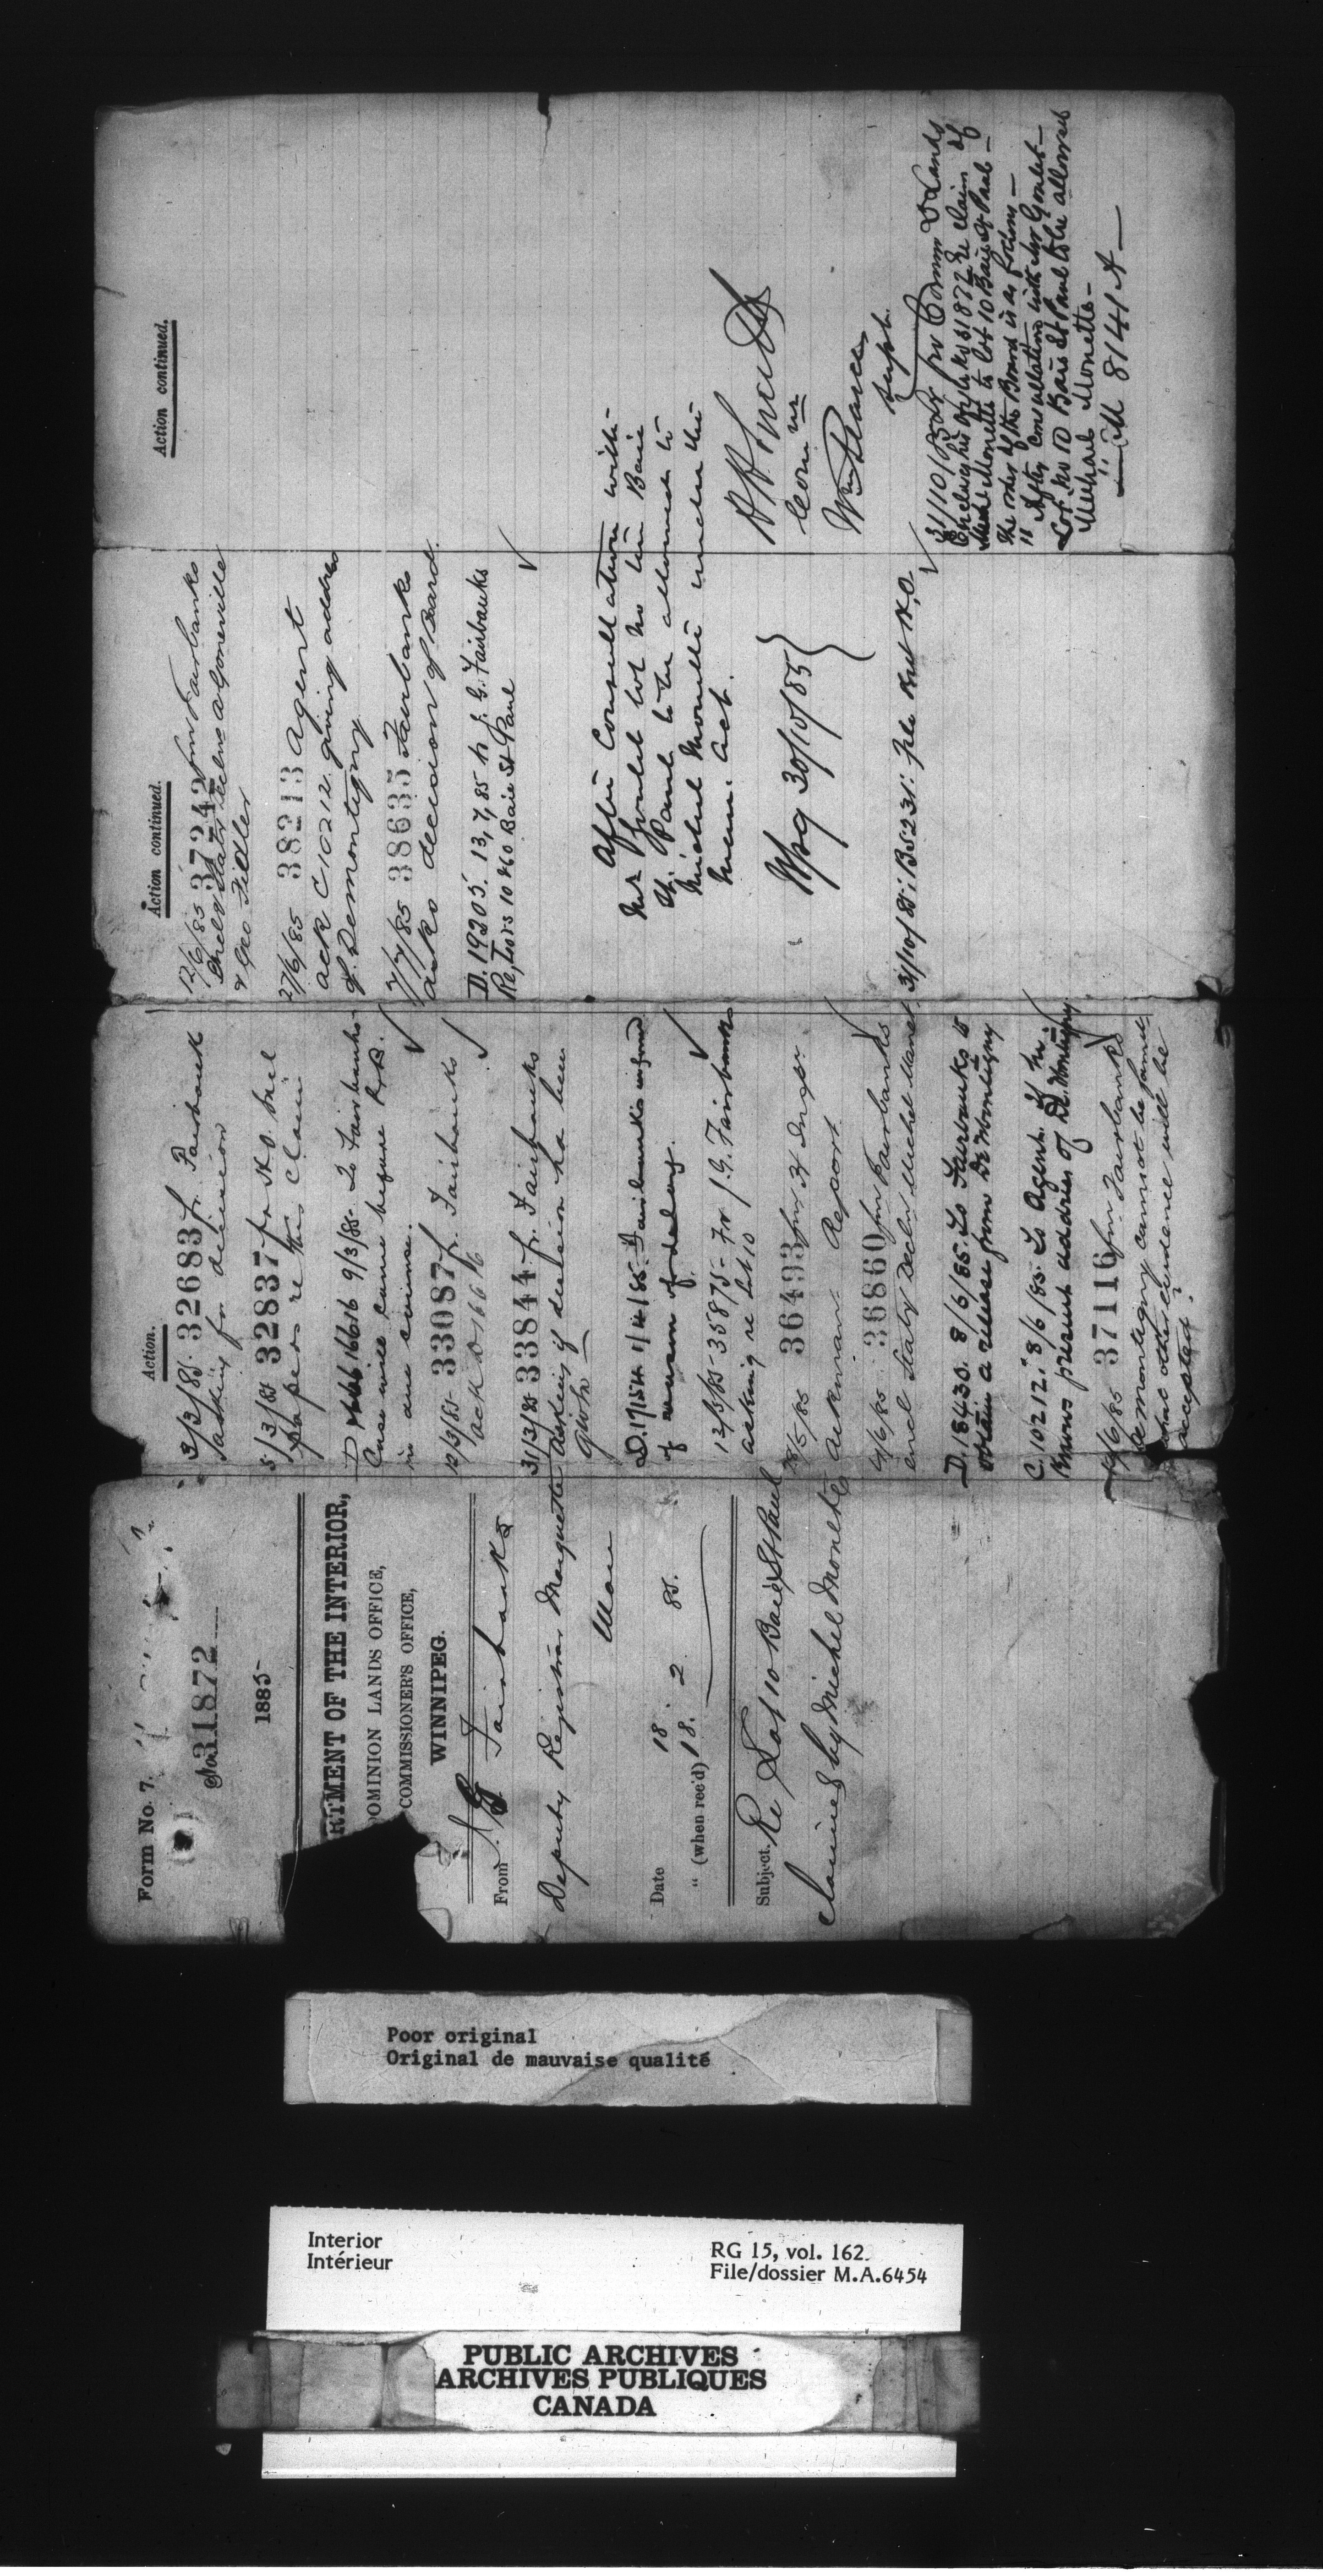 Form No. 7.
No 31872
1885
RTMENT OF THE INTERIOR,
DOMINION LANDS OFFICE,
COMMISSIONER'S OFFICE,
WINNIPEG.
From J. G. Fairbanks
Deputy Registrar Marquette
Man
Date 18 2 85.
" (when rec'd) 18.
Subject. Re Lot 10 Baie St Paul
claimed by Michel Monette
Action.
3/3/85. 32683 fr. Fairbank
asking for decision
5/3/85 32837 fr H.O. encl
papers re this claim
D 16616 9/3/85. To Fairbanks
Case will come before L.B.
in due course.
12/3/85 33087 fr. Fairbanks
ack D 16616
31/3/85 33844 fr. Fairbanks
asking if decision has been
given
D. 17154 1/4/85. Fairbanks informed
of reason of delay.
12/5/85 - 35875 - Fr J. G. Fairbanks
asking re Lot 10
28/5/85 36493 fm H
Report
4/6/85 36860 fm Fairbanks
encl Staty Decln Michel Monet
D. 18430. 8/6/85. To Fairbanks to
obtain a release from De Montigny
C. 10212. 8/6/85. To Agent. if he
knows present address of De Montigny
/6/85 37116 fm Fairbanks
Demontigny cannot be found
what other evidence will be
accepted?
Action continued.
12/6/85 37242 fm Fairbanks
Encl Staty Decln
& Geo Fidler
27/6/85 38213 Agent
ack C 10212 giving address
of Demontigny
7/7/85 38635 Fairbanks
asks decision of Board.
D. 19205. 13,7,85 to J. G. Fairbanks
Re, Lots 10 & 60 Baie St Paul
After Consultation with
Mr Goulet lot No ten Baie
St. Paul to be allowed to
Michel Monette under the
Man. Act.
Wpg 30/10/85
31/10/85; B5231: file sent H.O.
Action continued.
H H Smith
Comr
Wm Pearce
Supt.
31/10/85 fr Comm D Lands
Encloses his file No 31872 re claim of
Michl Monette to Lot 10 Baie St Paul -
The order of the Board is as follows -
" After Consultation with Mr Goulet -
Lot No 10 Baie St Paul to be allowed
Michael Monette -
M 8141 A -
Poor original
Original de mauvaise qualité
Interior
Intérieur
RG 15, vol. 162
File/dossier M.A.6454
PUBLIC ARCHIVES
ARCHIVES PUBLIQUES
CANADA